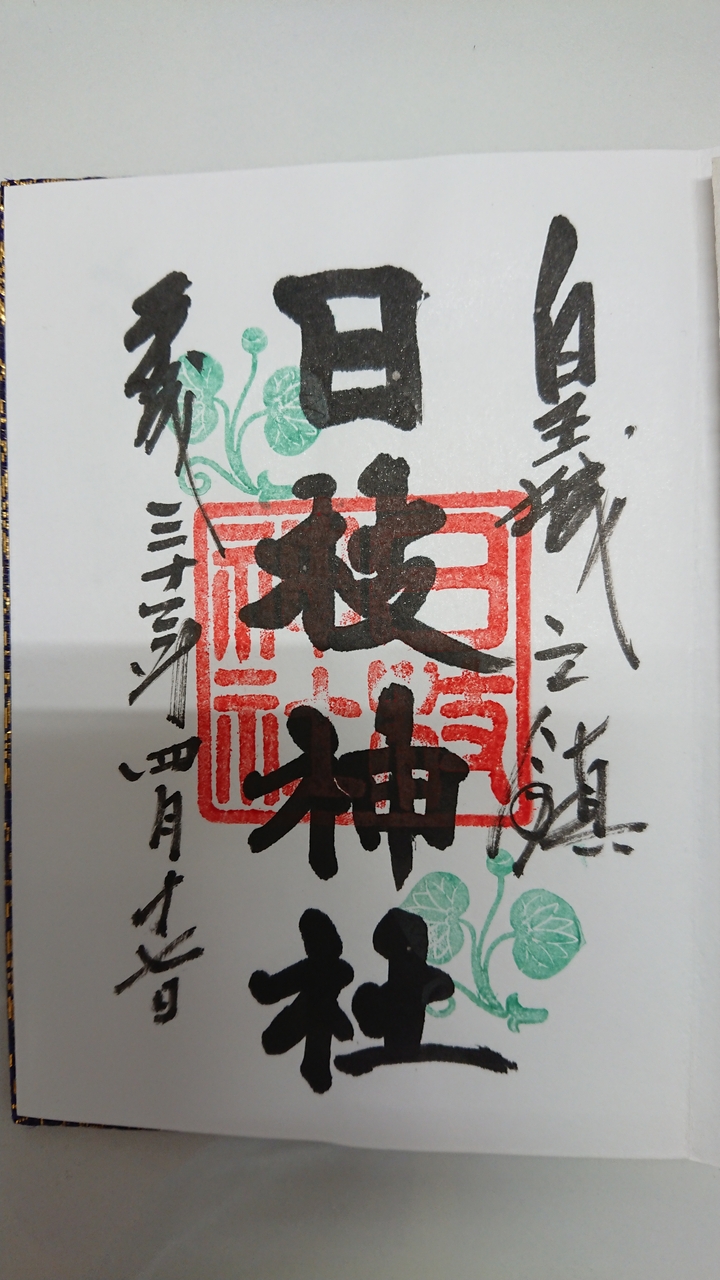 皇城之鎮
日枝神社
平成三十一年四月十七日
日枝
神社